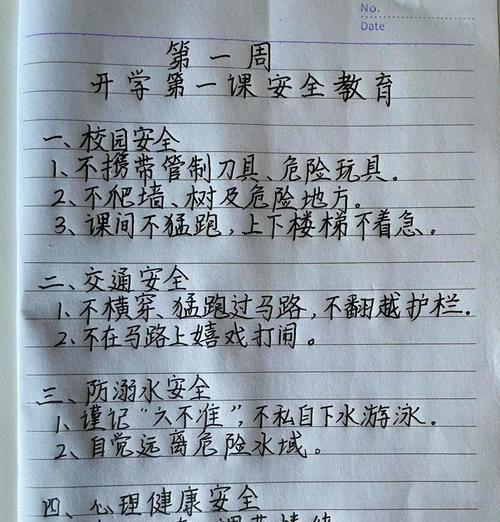 No.
Date
第一周
开学第一课安全教育
一、校园安全
1、不携带管制刀具、危险玩具。
2、不爬墙、树及危险地方。
3、课间不猛跑,上下楼梯不着急。
二、交通安全
1、不横穿、猛跑过马路,不翻越护栏。
2、不在马路上嬉戏打闹。
三、防溺水安全
1、谨记“六不准”,不私自下水游泳。
2、自觉远离危险水域。
四、心理健康安全